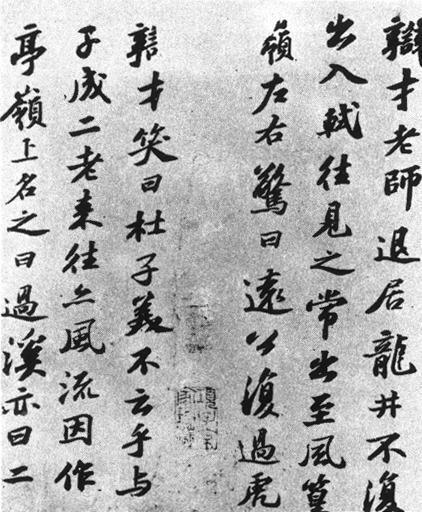 辯才老師退居龍井不復
出入軾往見之常出至風篁
嶺左右驚曰遠公復過虎
辯才笑曰杜子羙不云乎与
子成二老来往亦風流因作
亭嶺上名之曰過溪亦曰二